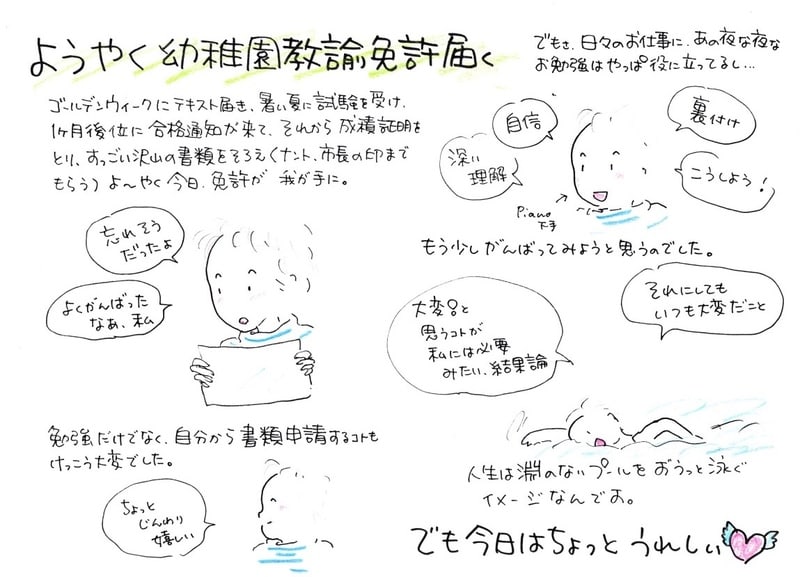 ようやく幼稚園教諭免許届く
ゴールデンウィークにテキスト届き、暑い夏に試験を受け、
1ヶ月後位に合格通知が来て、それから成績証明を
とり、すっごい沢山の書類をそろえ(ナント、市長の印まで
もらう)よ〜やく今日、免許が我が手に。
忘れそう
だったよ
よくがんばった
なあ、私
勉強だけでなく、自分から書類申請するコトも
けっこう大変でした。
ちょっと
じんわり
嬉しい
でもさ、日々のお仕事に、あの夜な夜な
お勉強はやっぱ役に立ってるし…
自信
裏付け
深い
理解
こうしよう!
Piano
下手
もう少しがんばってみようと思うのでした。
それにしても
いつも大変だこと
大変?と
思うコトが
私には必要
みたい、結果論
人生は淵のないプールをおうっと泳ぐ
イメージなんです。
でも今日はちょっとうれしい